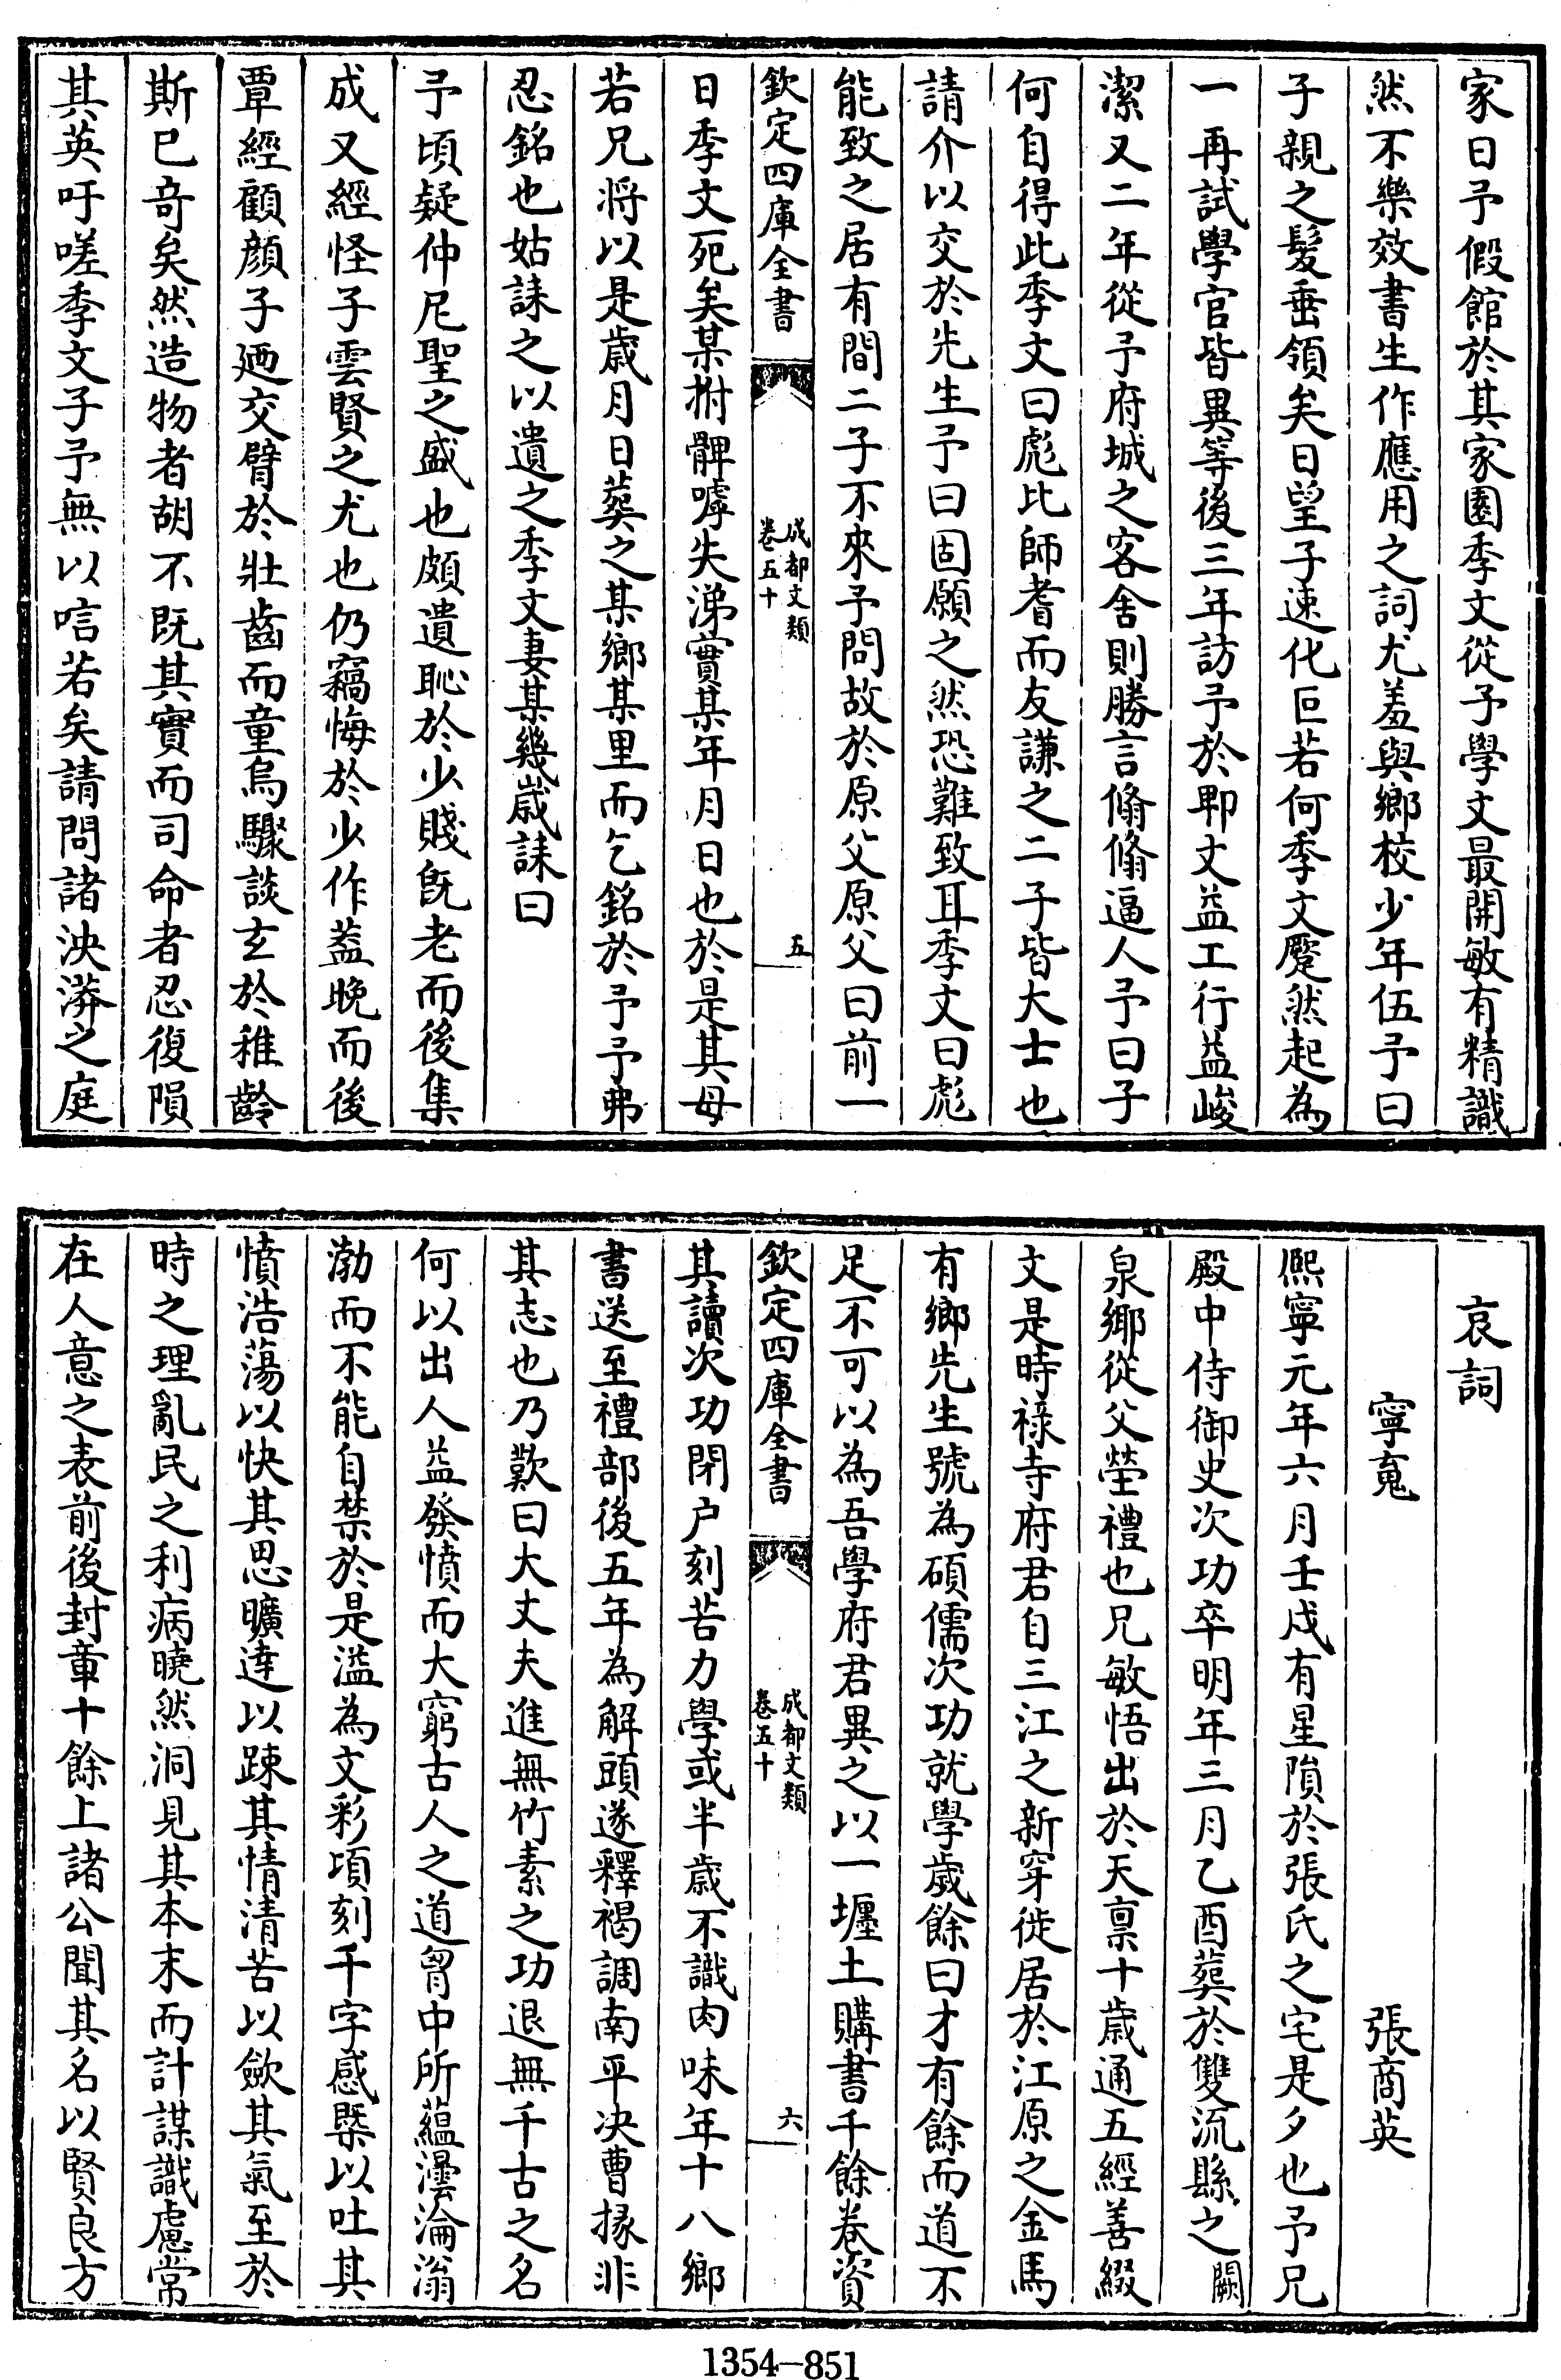 家曰予假館於其家園季文從予學文最開敏有精識
然不樂效書生作應用之詞尤羞與鄉校少年伍予曰
子親之髮垂領矣日望子速化叵若何季文蹷然起為
一再試學官皆異等後三年訪予於郫文益工行益峻
潔又二年從予府城之客舍則勝言翛翛逼人予曰子
何自得此季文曰彪比師耆而友謙之二子皆大士也
請介以交於先生予曰固願之然恐難致耳季文曰彪
能致之居有間二子不來予問故於原父原父曰前一
欽定四庫全書
成都文類
卷五十
五
日季文死矣某拊髀嘑失涕實某年月日也於是其母
若兄将以是歲月日葬之某鄉某里而乞銘於予予弗
忍銘也姑誄之以遺之季文妻某幾歲誄曰
予頃疑仲尼聖之盛也頗遺恥於少賤旣老而後集
成又經怪子雲賢之尤也仍竊悔於少作葢晚而後
覃經顧顔子廼交臂於壯齒而童烏驟談玄於稚齡
斯巳竒矣然造物者胡不既其實而司命者忍復隕
其英吁嗟季文子予無以唁若矣請問諸泱漭之庭
哀詞
寧䰟
張商英
熙寧元年六月壬戌有星隕於張氏之宅是夕也予兄
殿中侍御史次功卒明年三月乙酉葬於雙流縣之闕
泉鄉從父塋禮也兄敏悟出於天禀十歲通五經善綴
文是時祿寺府君自三江之新穿徙居於江原之金馬
有鄉先生號為碩儒次功就學歲餘曰才有餘而道不
足不可以為吾學府君異之以一㙻土購書千餘卷資
欽定四庫全書
成都文類
卷五十
六
其讀次功閉户刻苦力學或半歲不識肉味年十八鄉
書送至禮部後五年為解頭遂釋褐調南平决曹掾非
其志也乃歎曰大丈夫進無竹素之功退無千古之名
何以出人益發憤而大窮古人之道胷中所蘊澐淪滃
渤而不能自禁於是溢為文彩頃刻千字感槩以吐其
憤浩蕩以快其思曠達以踈其情清苦以歛其氣至於
時之理亂民之利病曉然洞見其本末而計謀識慮常
在人意之表前後封章十餘上諸公聞其名以賢良方
1354—851